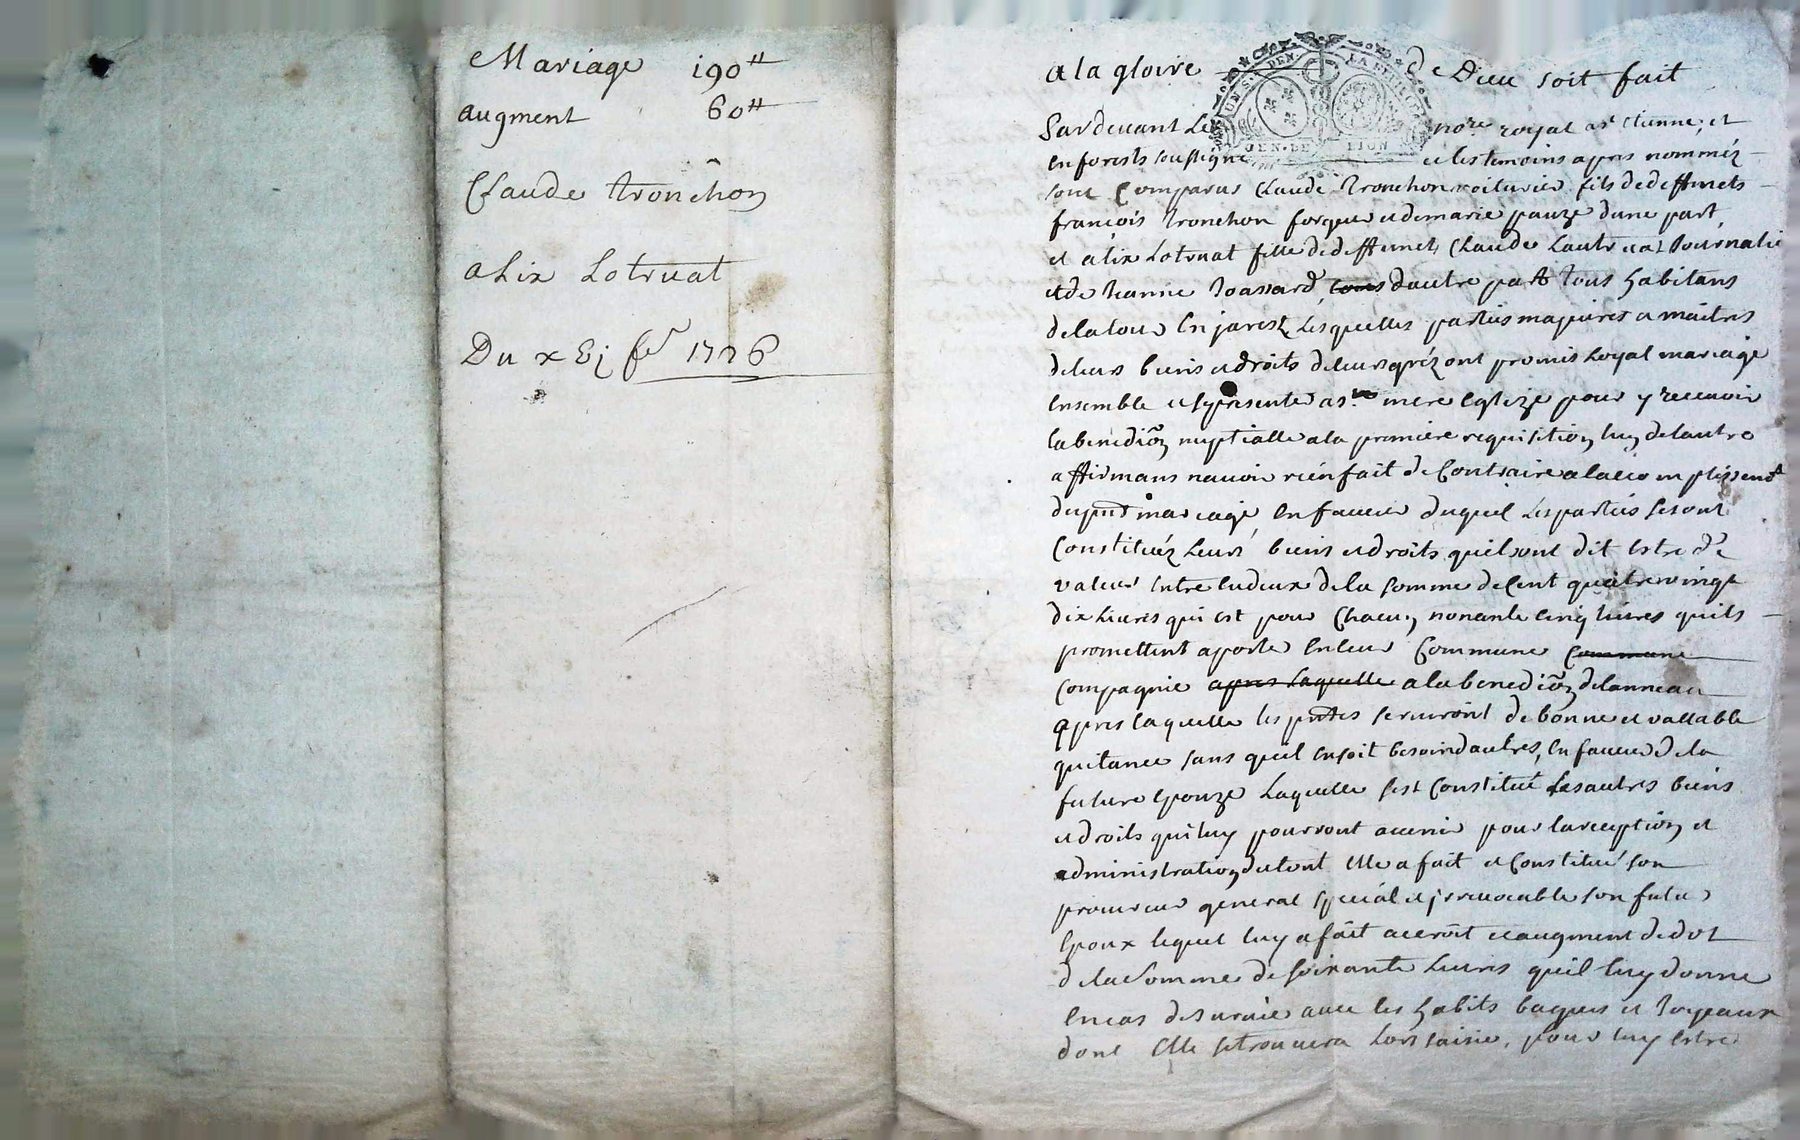 Mariage 190tt
augment 60tt
Claude tronchon
alix Lotruat
Du xEj fer 1726
a la gloire de Dieu soit fait
UN S. 8 DEN. LA FEUILLE
GEN. DE LION
Pardevant Le nore royal a st Etienne, et
en forests soussigne et les temoins apres nomméz
sont Comparus Claude tronchon voiturier fils de deffunets
françois tronchon et de marie pauze dune part
et alix Lotruat fille de deffunet Claude Lautruat Journalie
et de Jeanne tous dautre part tous habitans
de la tour En jarest, Lesquelles parties majeures et maitres
de leurs biens et droits de leurs gréz ont promis Loyal mariage
Ensemble et se presenter a ste mere Eglize pour y recevoir
la benediõn nuptialle a la premiere requisition lun de lautre
affirmans navoir rien fait de Contraire a lacomplissent
du pnt mariage, En faveur duquel Les parties se sont
Constituéz Leurs biens et droits quils ont dit Estre de
valeur Entre Eux deux de la somme de Cent quatre vingt
dix Livres qui est pour Chacun nonante Cinq livres quils
promettent aporter En leur Commune Commune
Compagnie apres Laquelle a la benediõn de lanneau
apres laquelle les pntes serviront de bonne et vallable
quitance sans quil En soit besoin dautres, En faveur de la
future Epouze Laquelle sest Constitué Les autres biens
et droits qui luy pourront avenir pour la reception et
administration du tout Elle a fait et Constitué son
procureur general special et jrrevocable son futur
Epoux lequel luy a fait accroit et augment de dot
de la somme de soixante Livres quil luy donne
En cas de survie avec les habits bagues et Joyeaux
dont Elle se trouvera Lors saisie, pour luy Estre